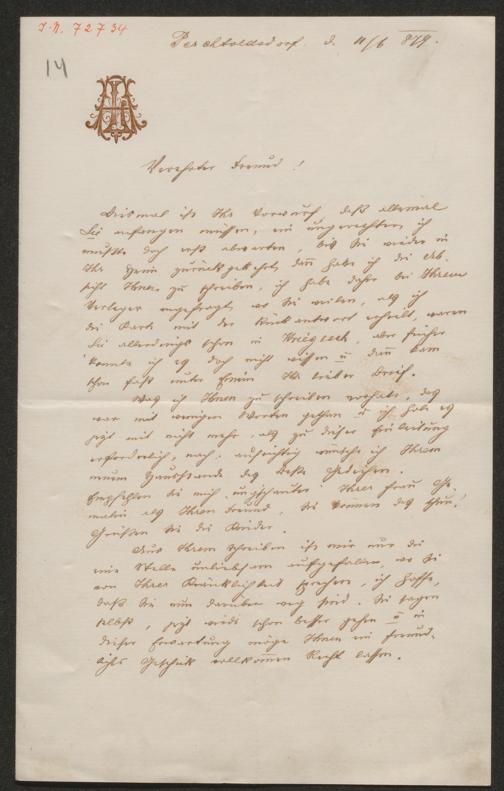 I.N. 72734
14
Perchtoldsdorf. d. 11/6 879.
Verehrter Freund!
Diesmal ist Ihr Vorwurf, daß allemal
Sie anfangen müssen, ein ungerechter, ich
mußte doch erst abwarten, bis Sie wieder in
Ihr Heim zurückgekehrt, dann habe ich die Ab-
sicht Ihnen zu schreiben, ich habe daher bei Ihrem
Verleger angefragt wo Sie weilen, als ich
die Karte mit der Rückantwort erhielt, waren
Sie allerdings schon in, aber früher
konnte ich es doch nicht wissen u dann kam
schon fast unter Einem Ihr lieber Brief.
Was ich Ihnen zu schreiben vorhabe, das
war mit wenigen Worten gethan u ich habe es
jetzt mit nicht mehr, als zu dieser Einleitung
erforderlich, nach. Aufrichtig wünsche ich Ihrem
neuen Hausstande das beste Gedeihen.
Empfehlen Sie mich ungeschauter Ihrer Frau Ge-
malin als Ihren Freund, Sie können das thun!
Grüßen Sie die Kinder.
Aus Ihrem Schreiben ist mir nur die
eine Stelle unliebsam aufgefallen, wo Sie
von Ihrer Kränklichkeit sprechen, ich hoffe,
daß Sie nun darüber weg sind. Sie sagen
selbst, jetzt wirds schon besser gehen u in
dieser Erwartung möge Ihnen ein freund-
liches Geschick vollkommen Recht lassen.